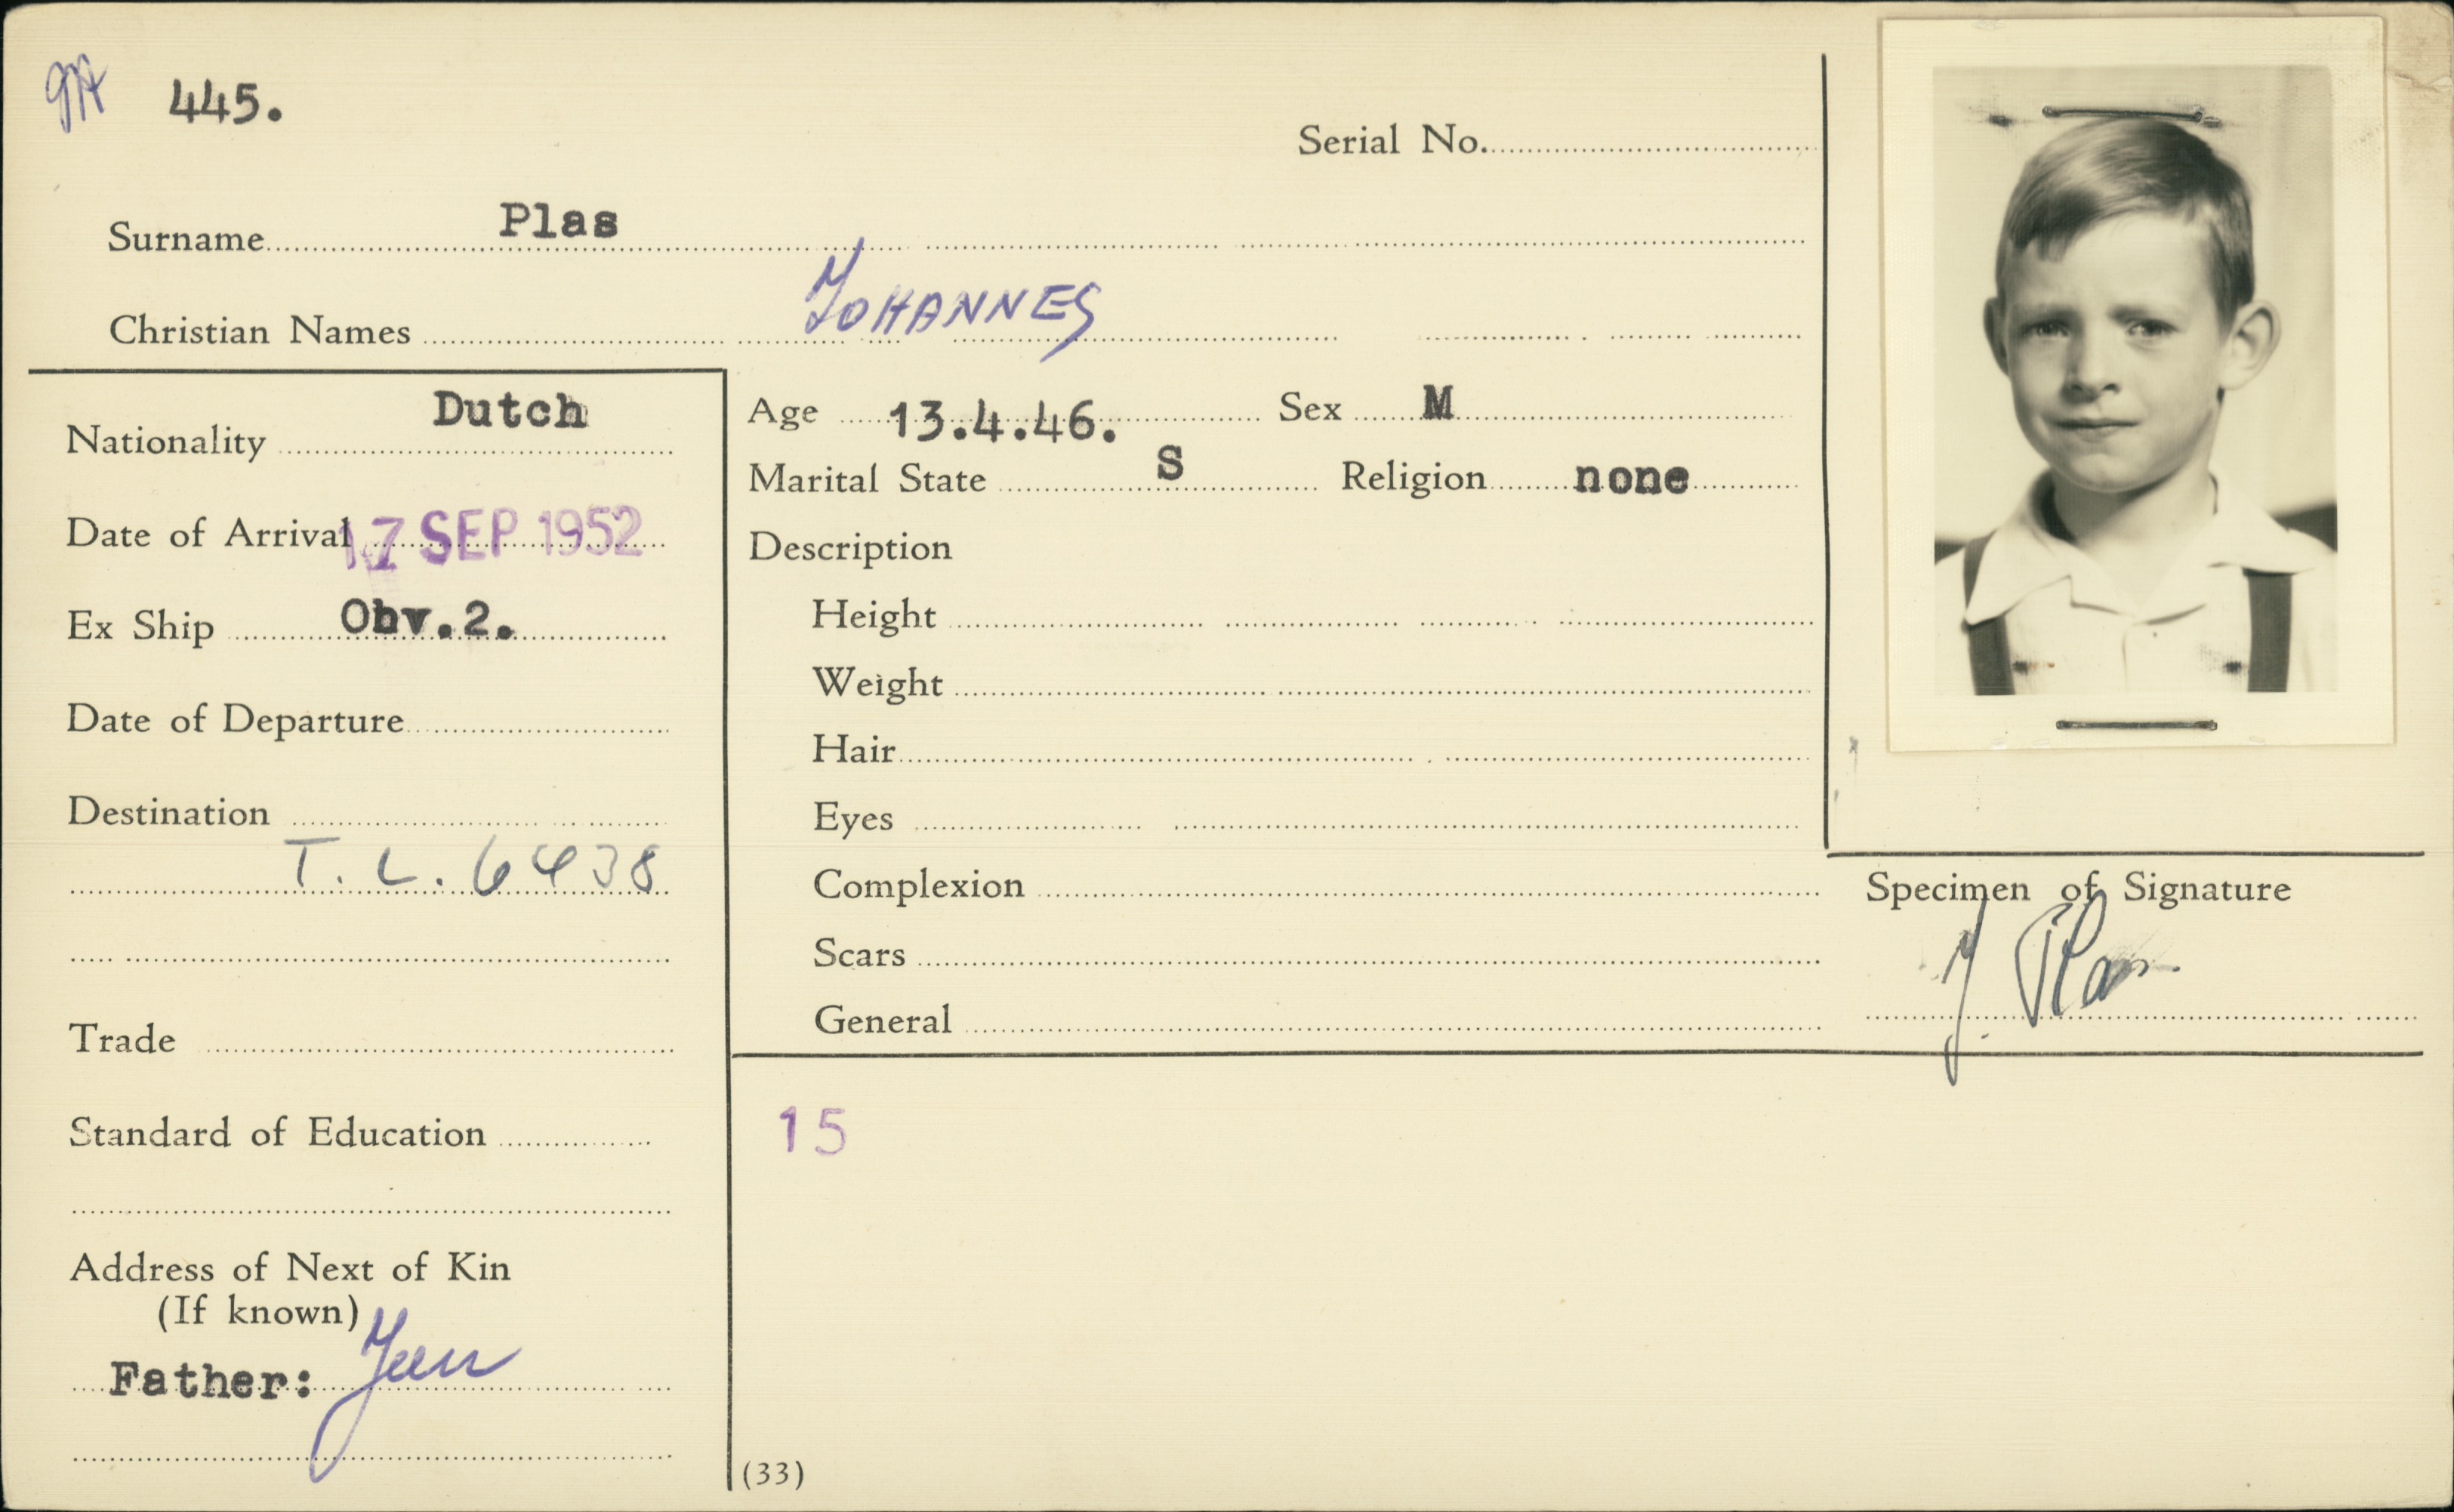 445.
Serial No.
Surname Plas
Christian Names JOHANNES
Nationality Dutch
Date of Arrival 17 SEP 1952
Ex Ship Obv.2.
Date of Departure
Destination
T. L. 6438
Trade
Standard of Education
Address of Next of Kin
(If known)
Father:
Age 13.4.46. Sex M
Marital State S Religion none
Description
Height
Weight
Hair
Eyes
Complexion
Scars
General
15
(33)
Specimen of Signature
J. Plas